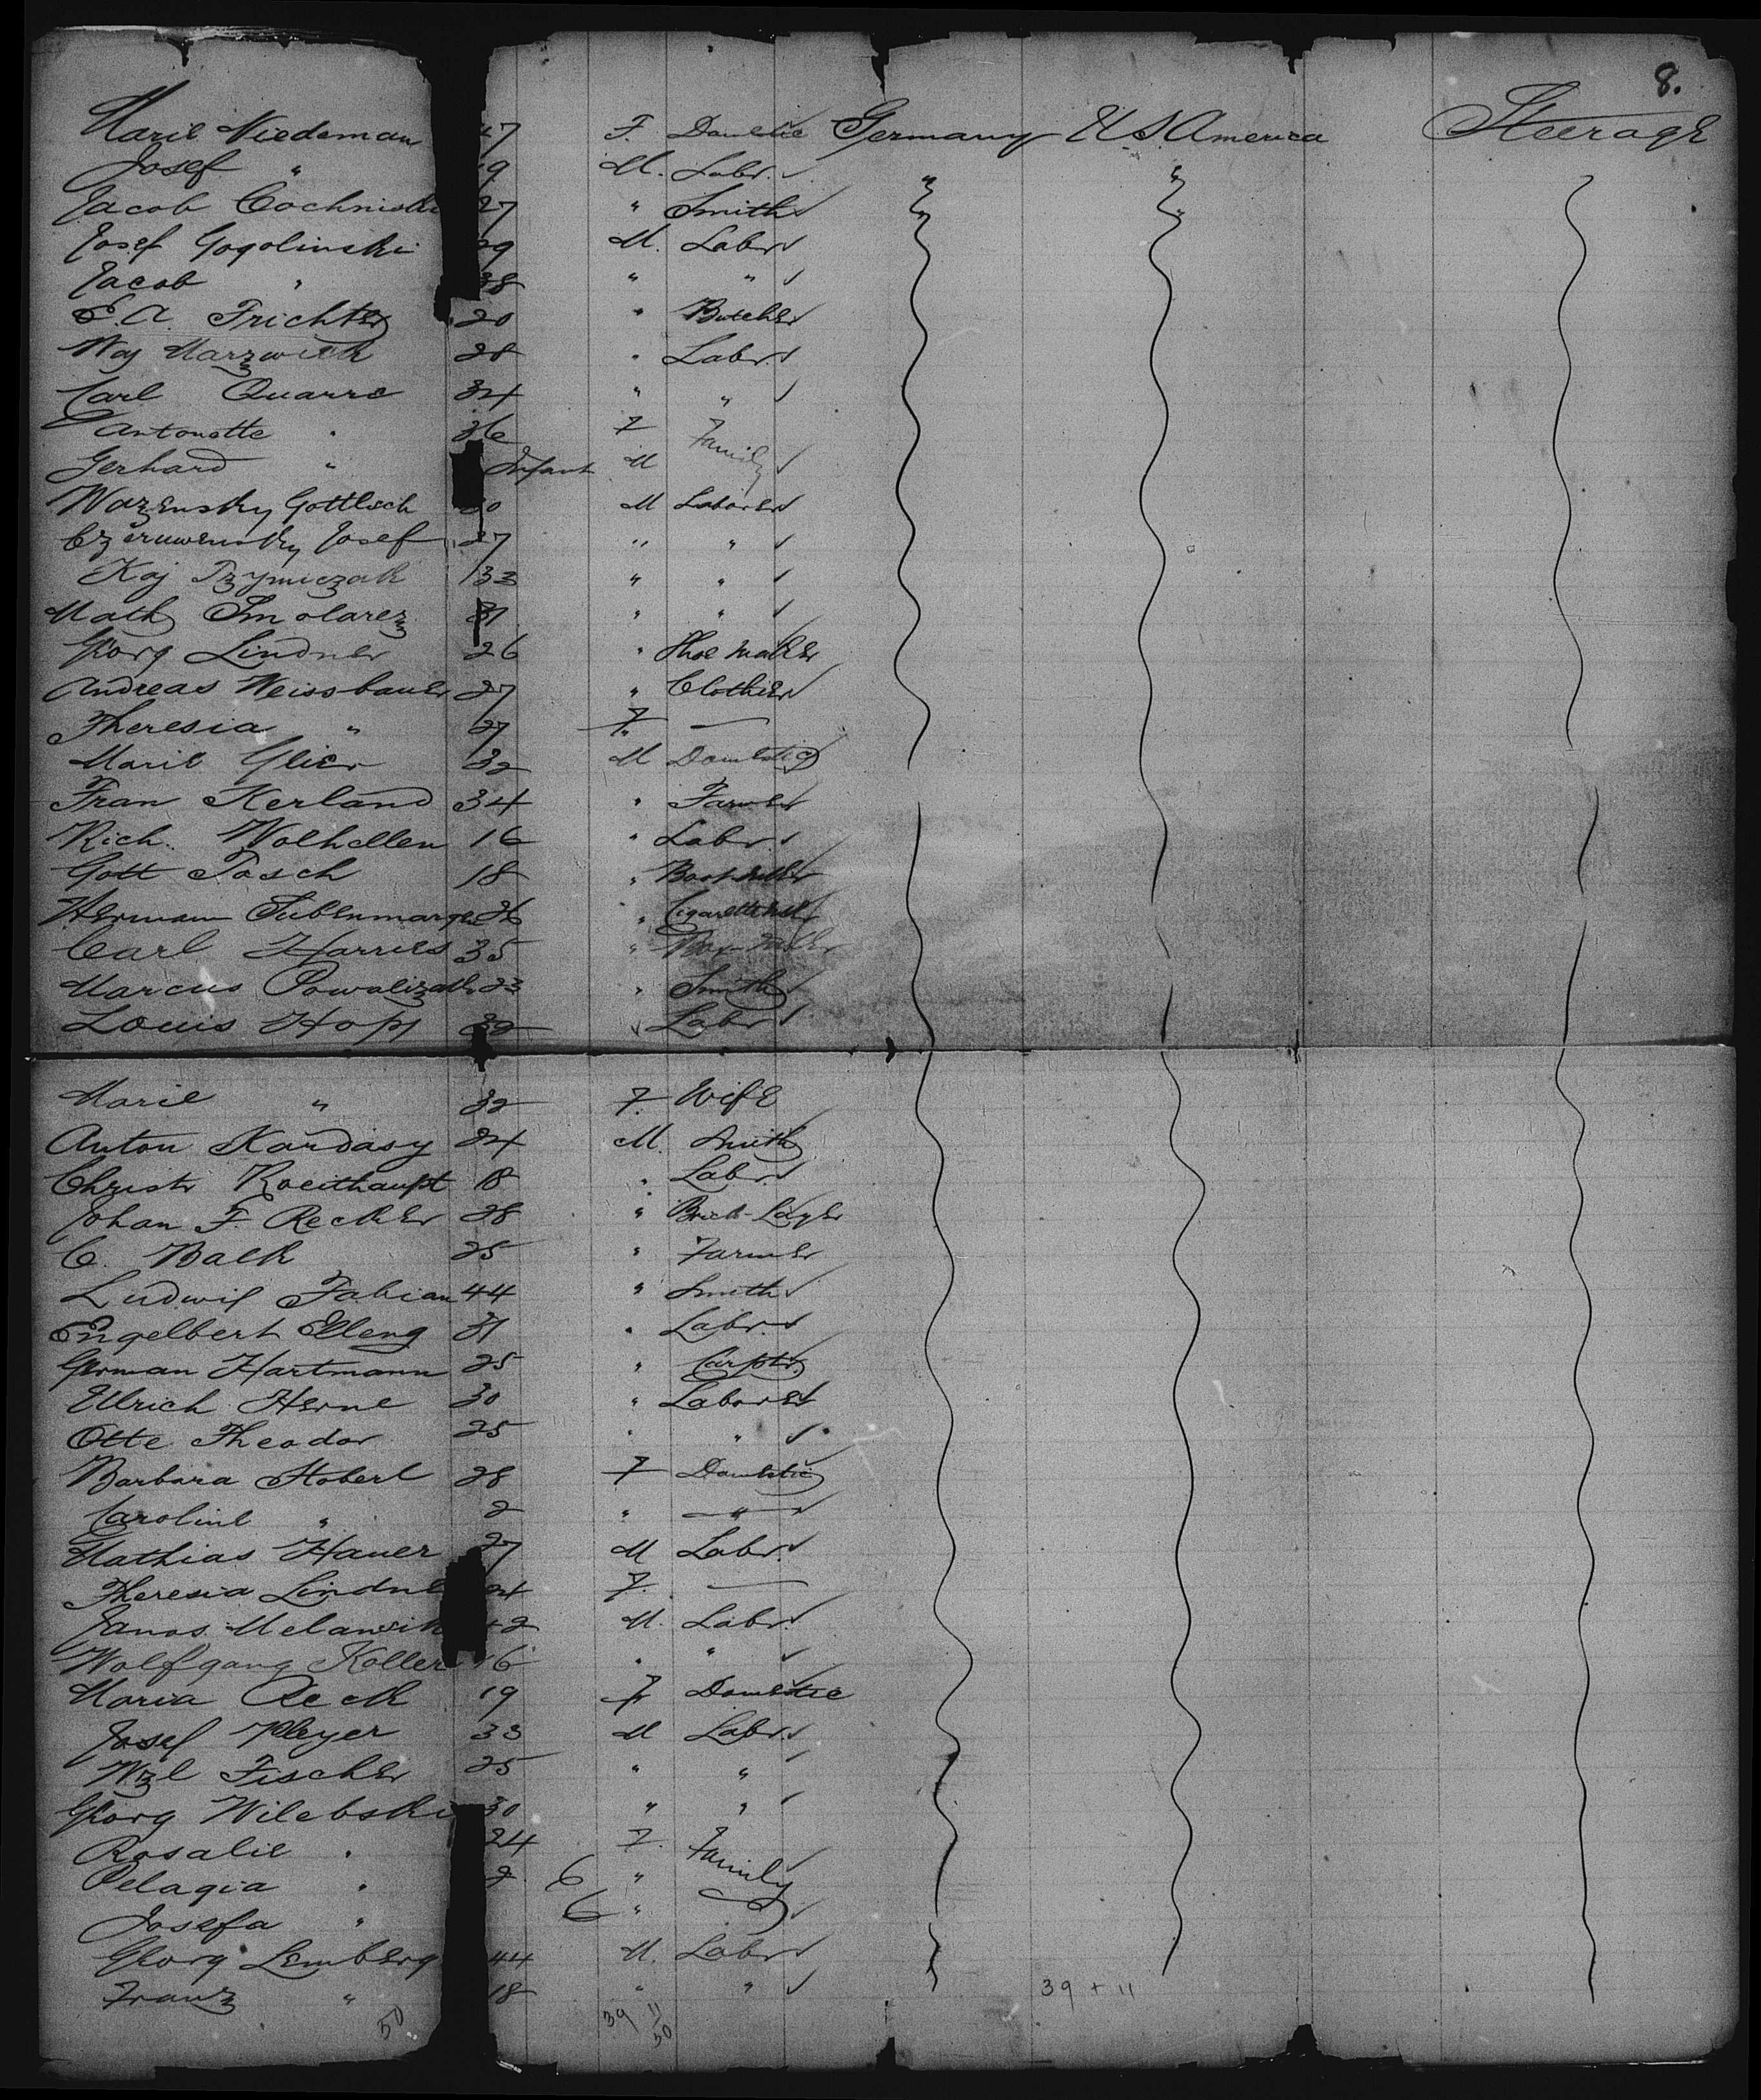 8.
Marie Niedeman 47 F. Domestic Germany U.S. America Steerage
Josef " 19 M. Labr.
Jacob Cochniski 27 " Smith " "
Josef Gogolinski 29 M. Labr
Jacob " 38 " "
E. A. Trichter 20 " Butcher
Woj Marzwick 28 " Labr
Carl Quarre 34 " "
Antonette " 36 F Family
Gerhard " Infant M
Wazensky Gottlieb 30 M Laborer
Czeruwensky Josef 27 " "
Kaj 33 " "
Math Smolarez 31 " "
Georg Lindner 26 " Shoe maker
Andreas Weissbauer 27 " Clothier
Theresia " 27 F. —
Marie Glier 32 M Domestic
Fran Kerland 34 " Farmer
Rich. Wolhellen 16 " Labr.
Gott Pasch 18 "
Herman 26 "
Carl Harries 35 "
Marcus 23 " Smith
Louis Hopf 32 " Labr
Marie " 32 F. Wife
Anton Kardasy 24 M. Smith
Christ Roeithaupt 18 " Labr
Johan F. Recker 28 " Brick-Layer
C. Balk 25 " Farmer
Ludwif Fabian 44 " Smith
Engelbert Elleng 31 " Labr.
Herman Hartmann 25 " Carptr.
Ullrich Herne 30 " Laborer
Otte Theodor 25 " "
Barbara Stoberl 28 F Domestic
Caroline " 2 " — " —
Mathias Hauer 27 M Labr.
Theresia Lindne 24 F. —
Janos 42 M. Labr.
Wolfgang Koller 16 " "
Maria Reck 19 F Domestic
Josef Pleyer 33 M Labr.
Wzl Fischer 25 " "
Georg Wilebski 30 " "
Rosalie " 24 F. Family
Pelagia " 2 6 "
Josefa " 6 "
Georg Lemberg 44 M. Labr
Franz " 18 " "
39 + 11
50 39 11
50